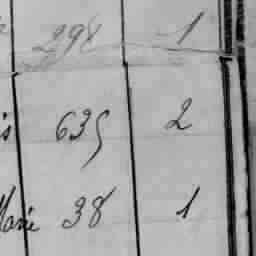 298 1
is 635 2
Marie 38 1